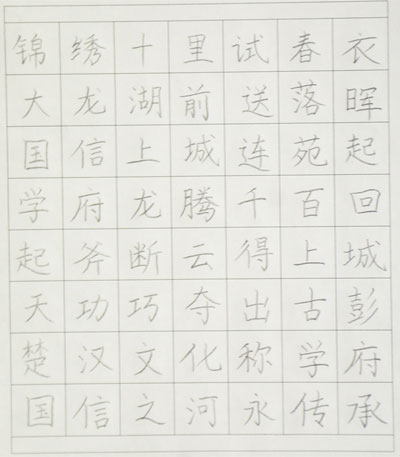 锦绣十里试春衣
大龙湖前送落晖
国信上城连苑起
学府龙腾千百回
起斧断云得上城
天功巧夺出古彭
楚汉文化称学府
国信之河永传承